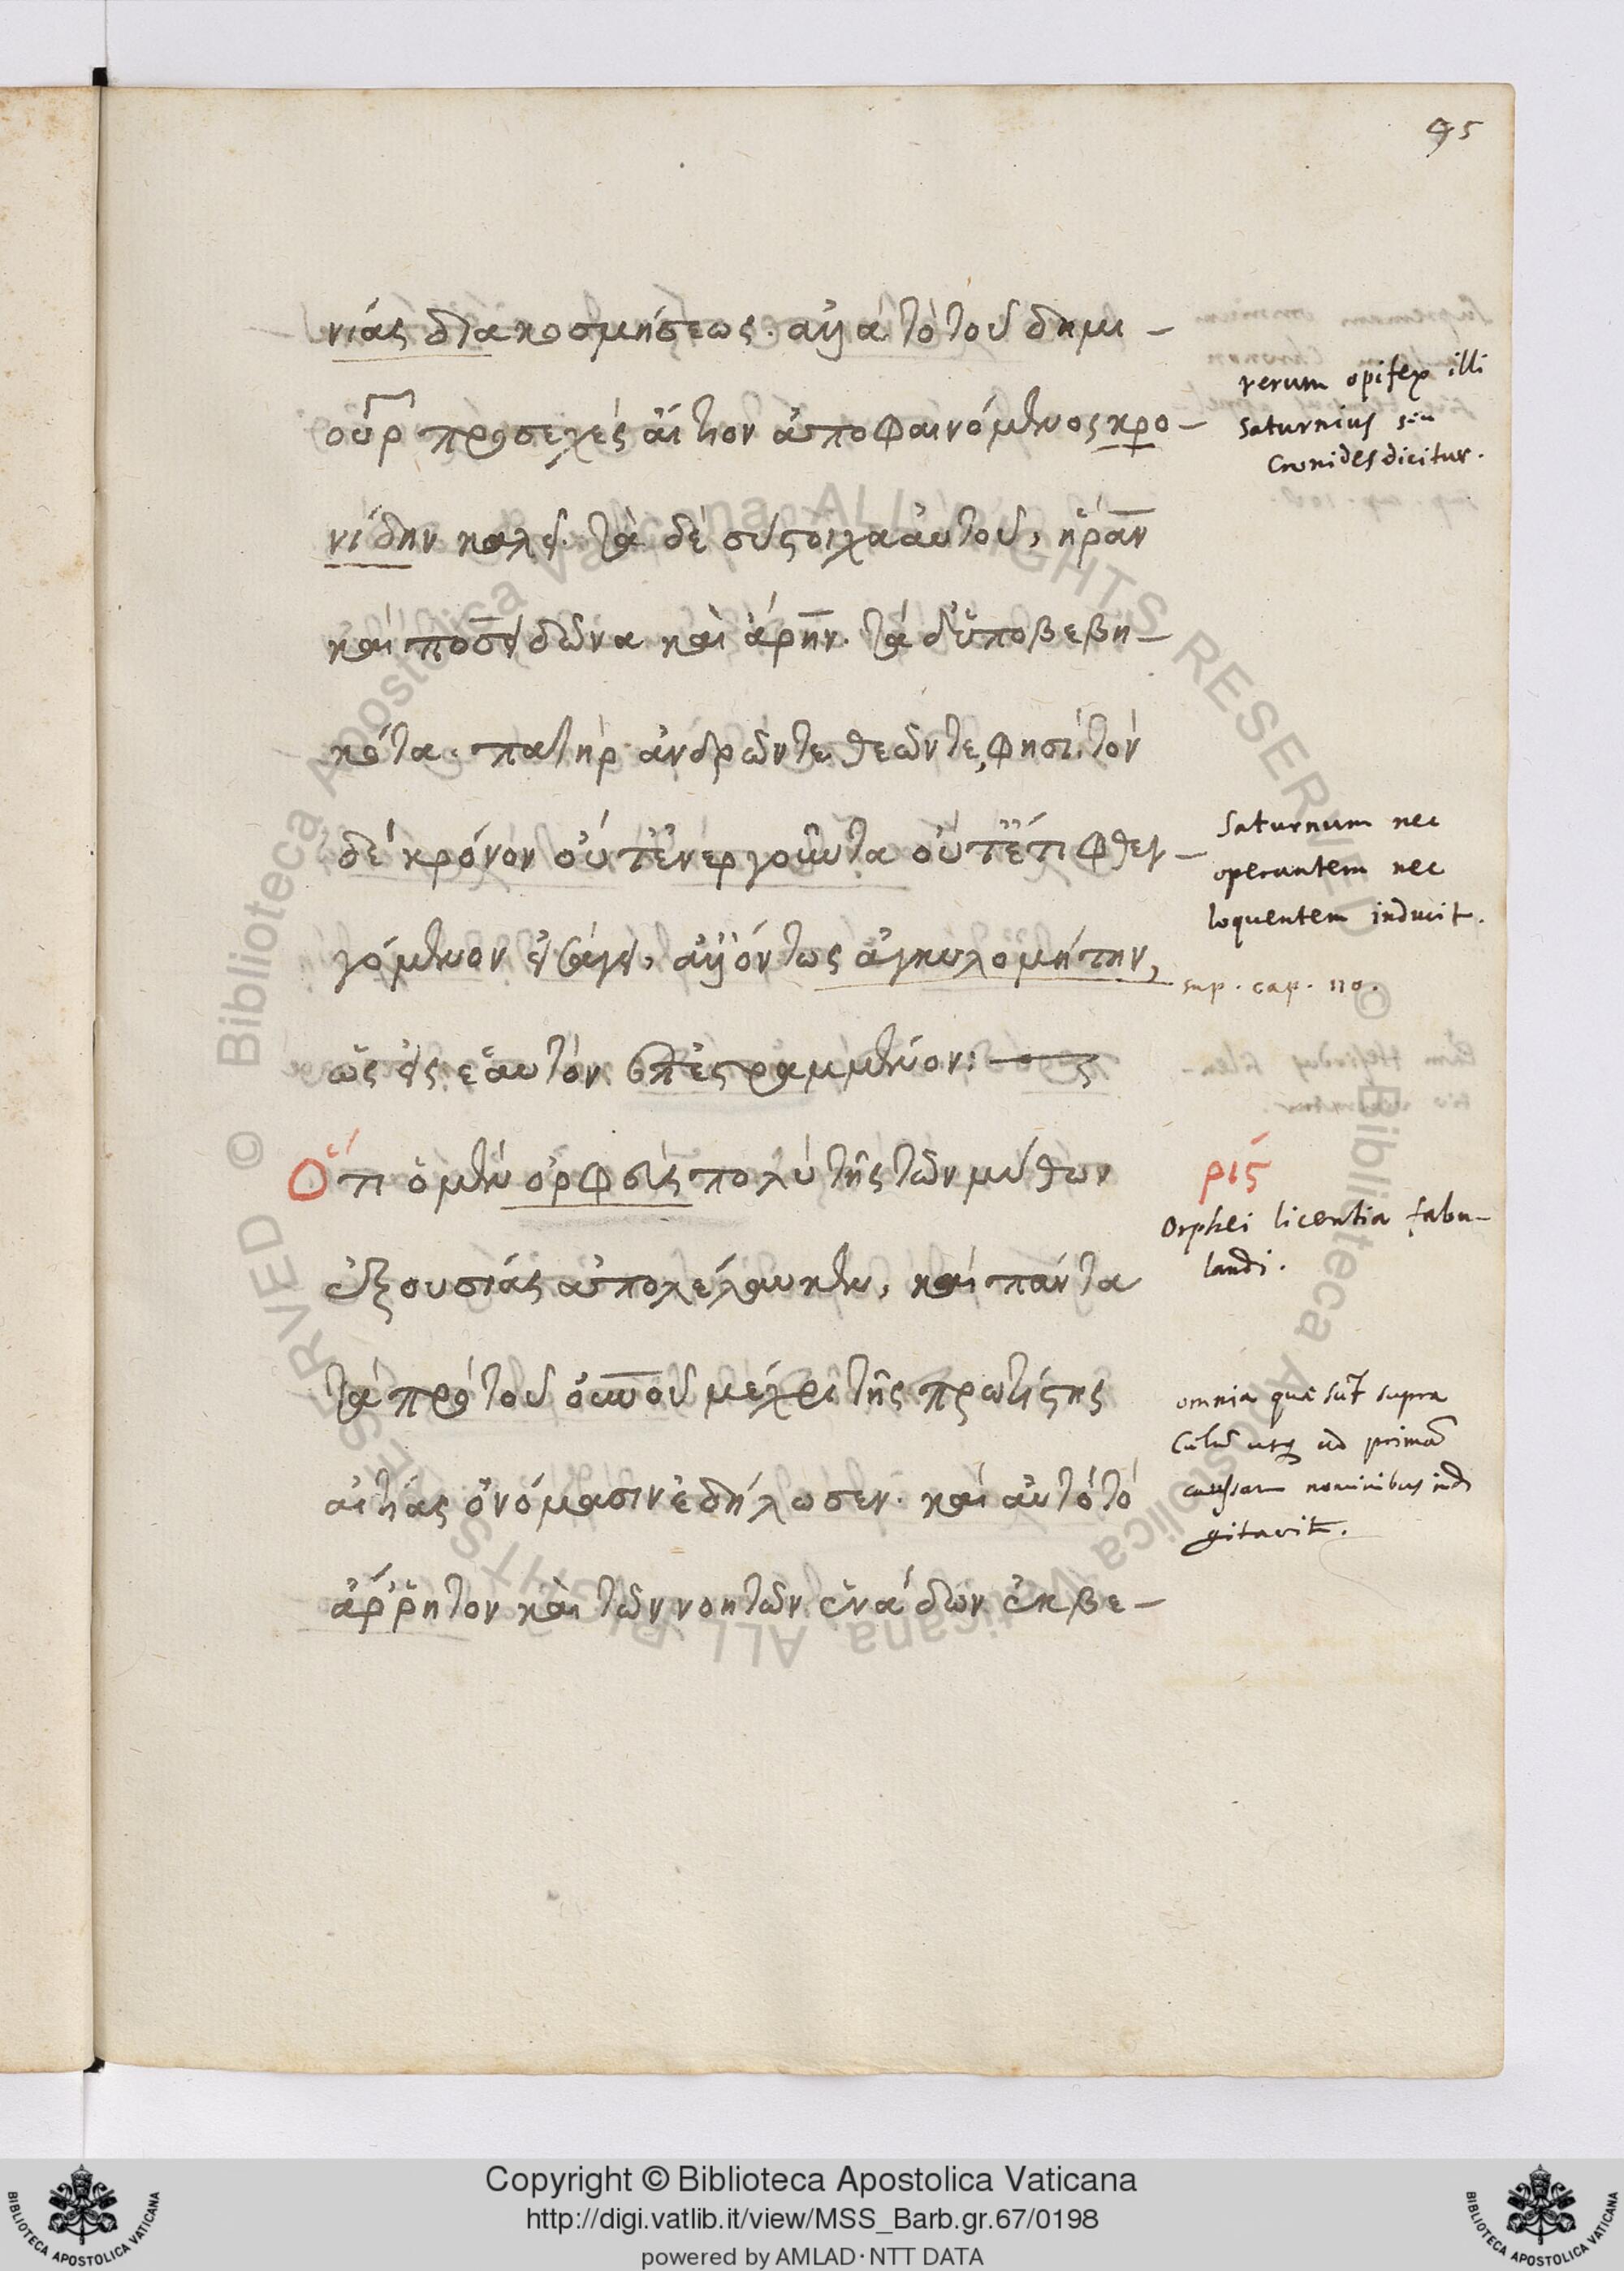 95
νίας διακοσμήσεως. αὐτὸ τοῦ δημι-
ουρ προσεχὲς αἴτιον ἀποφαινόμενος κρο-
νίδην καλεῖ. τὰ δὲ σύστοιχα αὐτοῦ, ἥραν
καὶ ποσειδῶνα καὶ ἄρην. τὰ δ' ὑποβεβη-
κότα. πατὴρ ἀνδρῶντε θεῶντε, φησι. τὸν
δὲ κρόνον οὔτ' ἐνεργοῦντα οὔτ' ἔτι φθεγ-
γόμενον εἰσάγει, ὄντως ἀγκυλομήτην,
ὡς εἰς ἑαυτὸν ἐπεστραμμένον:
Ὅτι ὁ μὲν ὀρφεὺς πολὺ τῆς τῶν μύθων
ἐξουσίας ἀπολέλαυκεν, καὶ πάντα
τὰ πρὸ τοῦ οὐνοῦ μέχρι τῆς πρωτίστης
αἰτίας ὀνόμασιν ἐδήλωσεν. καὶ αὐτὸ τὸ
ἄῤῥητον καὶ τῶν νοητῶν ἑνάδων ἐκβε-
rerum opifex illi
Saturnius siu
Cronides dicitur.
Saturnum nec
operantem nec
loquentem inducit.
sup. cap. 110.
ρις
Orphei licentia fabu-
landi.
omnia quae sūt supra
Celū usq ad primā
caussam nominibus indi
gitavit.
© Biblioteca Apostolica Vaticana ALL RIGHTS RESERVED
© Biblioteca Apostolica Vaticana ALL RIGHTS RESERVED
Copyright © Biblioteca Apostolica Vaticana
http://digi.vatlib.it/view/MSS_Barb.gr.67/0198
powered by AMLAD·NTT DATA
BIBLIOTECA APOSTOLICA VATICANA
BIBLIOTECA APOSTOLICA VATICANA